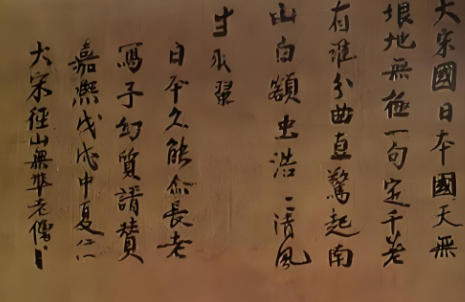 大宋國日本國天無
垠地無極一句定千差
有誰分曲直驚起南
山白額虫浩〻清風
生羽翼
日本久能尒長老
寫予幻質請贊
嘉熙戊戌中夏
大宋徑山無準老僧